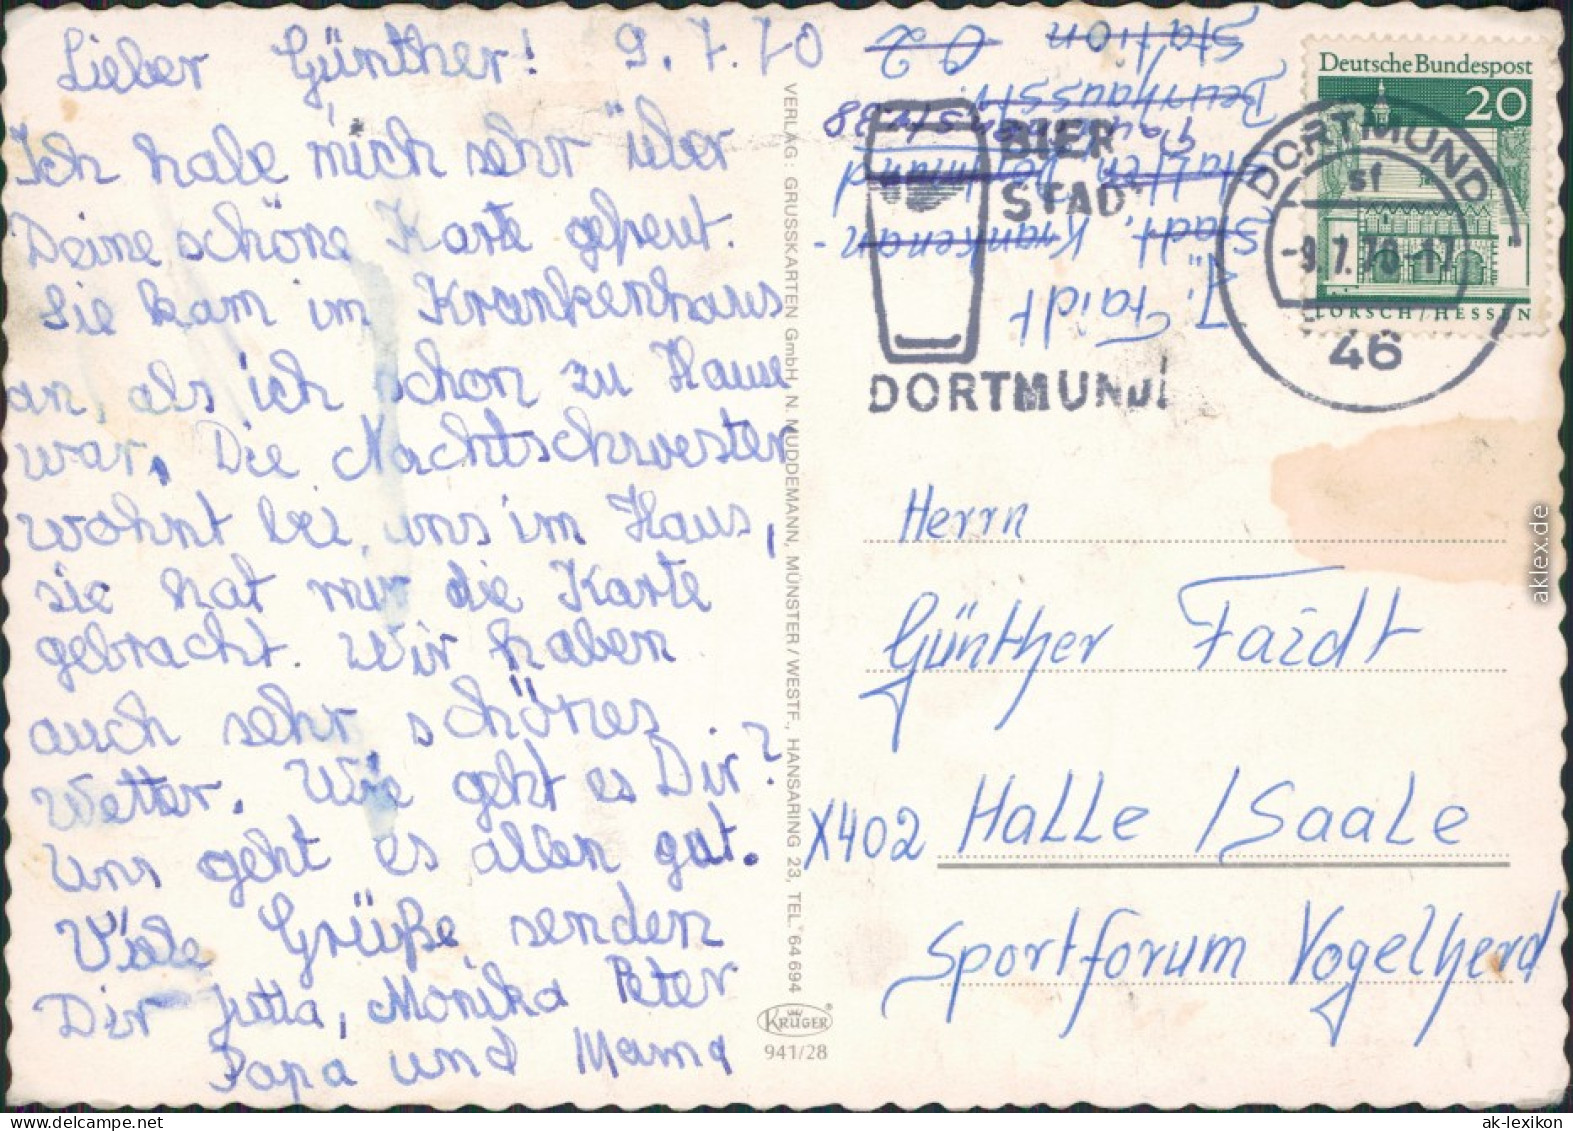 Lieber Günther! 9.7.70
Ich habe mich sehr über
Deine schöne Karte gefreut.
Sie kam im Krankenhaus
an, als ich schon zu Hause
war. Die Nachtschwester
wohnt bei uns im Haus,
sie hat mir die Karte
gebracht. Wir haben
auch sehr schönes
Wetter. Wie geht es Dir?
Uns geht es allen gut.
Viele Grüße senden
Dir Jutta, Monika Peter
Papa und Mama
VERLAG: GRUSSKARTEN GmbH, N. MUDDEMANN, MÜNSTER/WESTF., HANSARING 23, TEL. 64 694
KRÜGER®
941/28
J. Faidt
Städt. Krankenan-
stalten Dortmund
Beurhausstr.
Station 02
BIER
STADT
DORTMUND!
Deutsche Bundespost
20
LORSCH/HESSEN
DORTMUND
sf
-9.7.70-17
46
Herrn
Günther Faidt
X402 Halle / Saale
Sportforum Vogelherd
aklex.de
www.delcampe.net
ak-lexikon